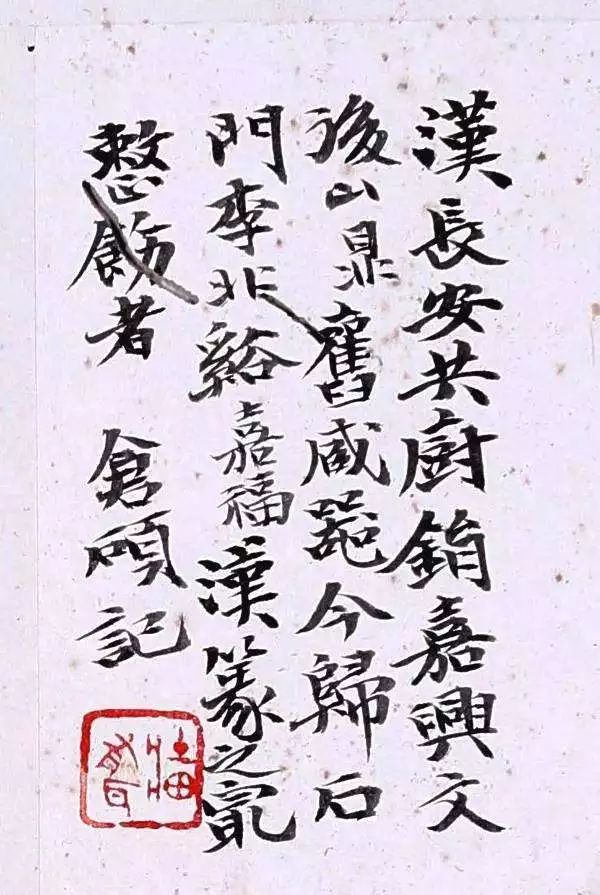 漢長安共廚鋗嘉興文
後山鼎舊臧器今歸石
門李北谿嘉福漢篆之冣
整飭者 倉碩記